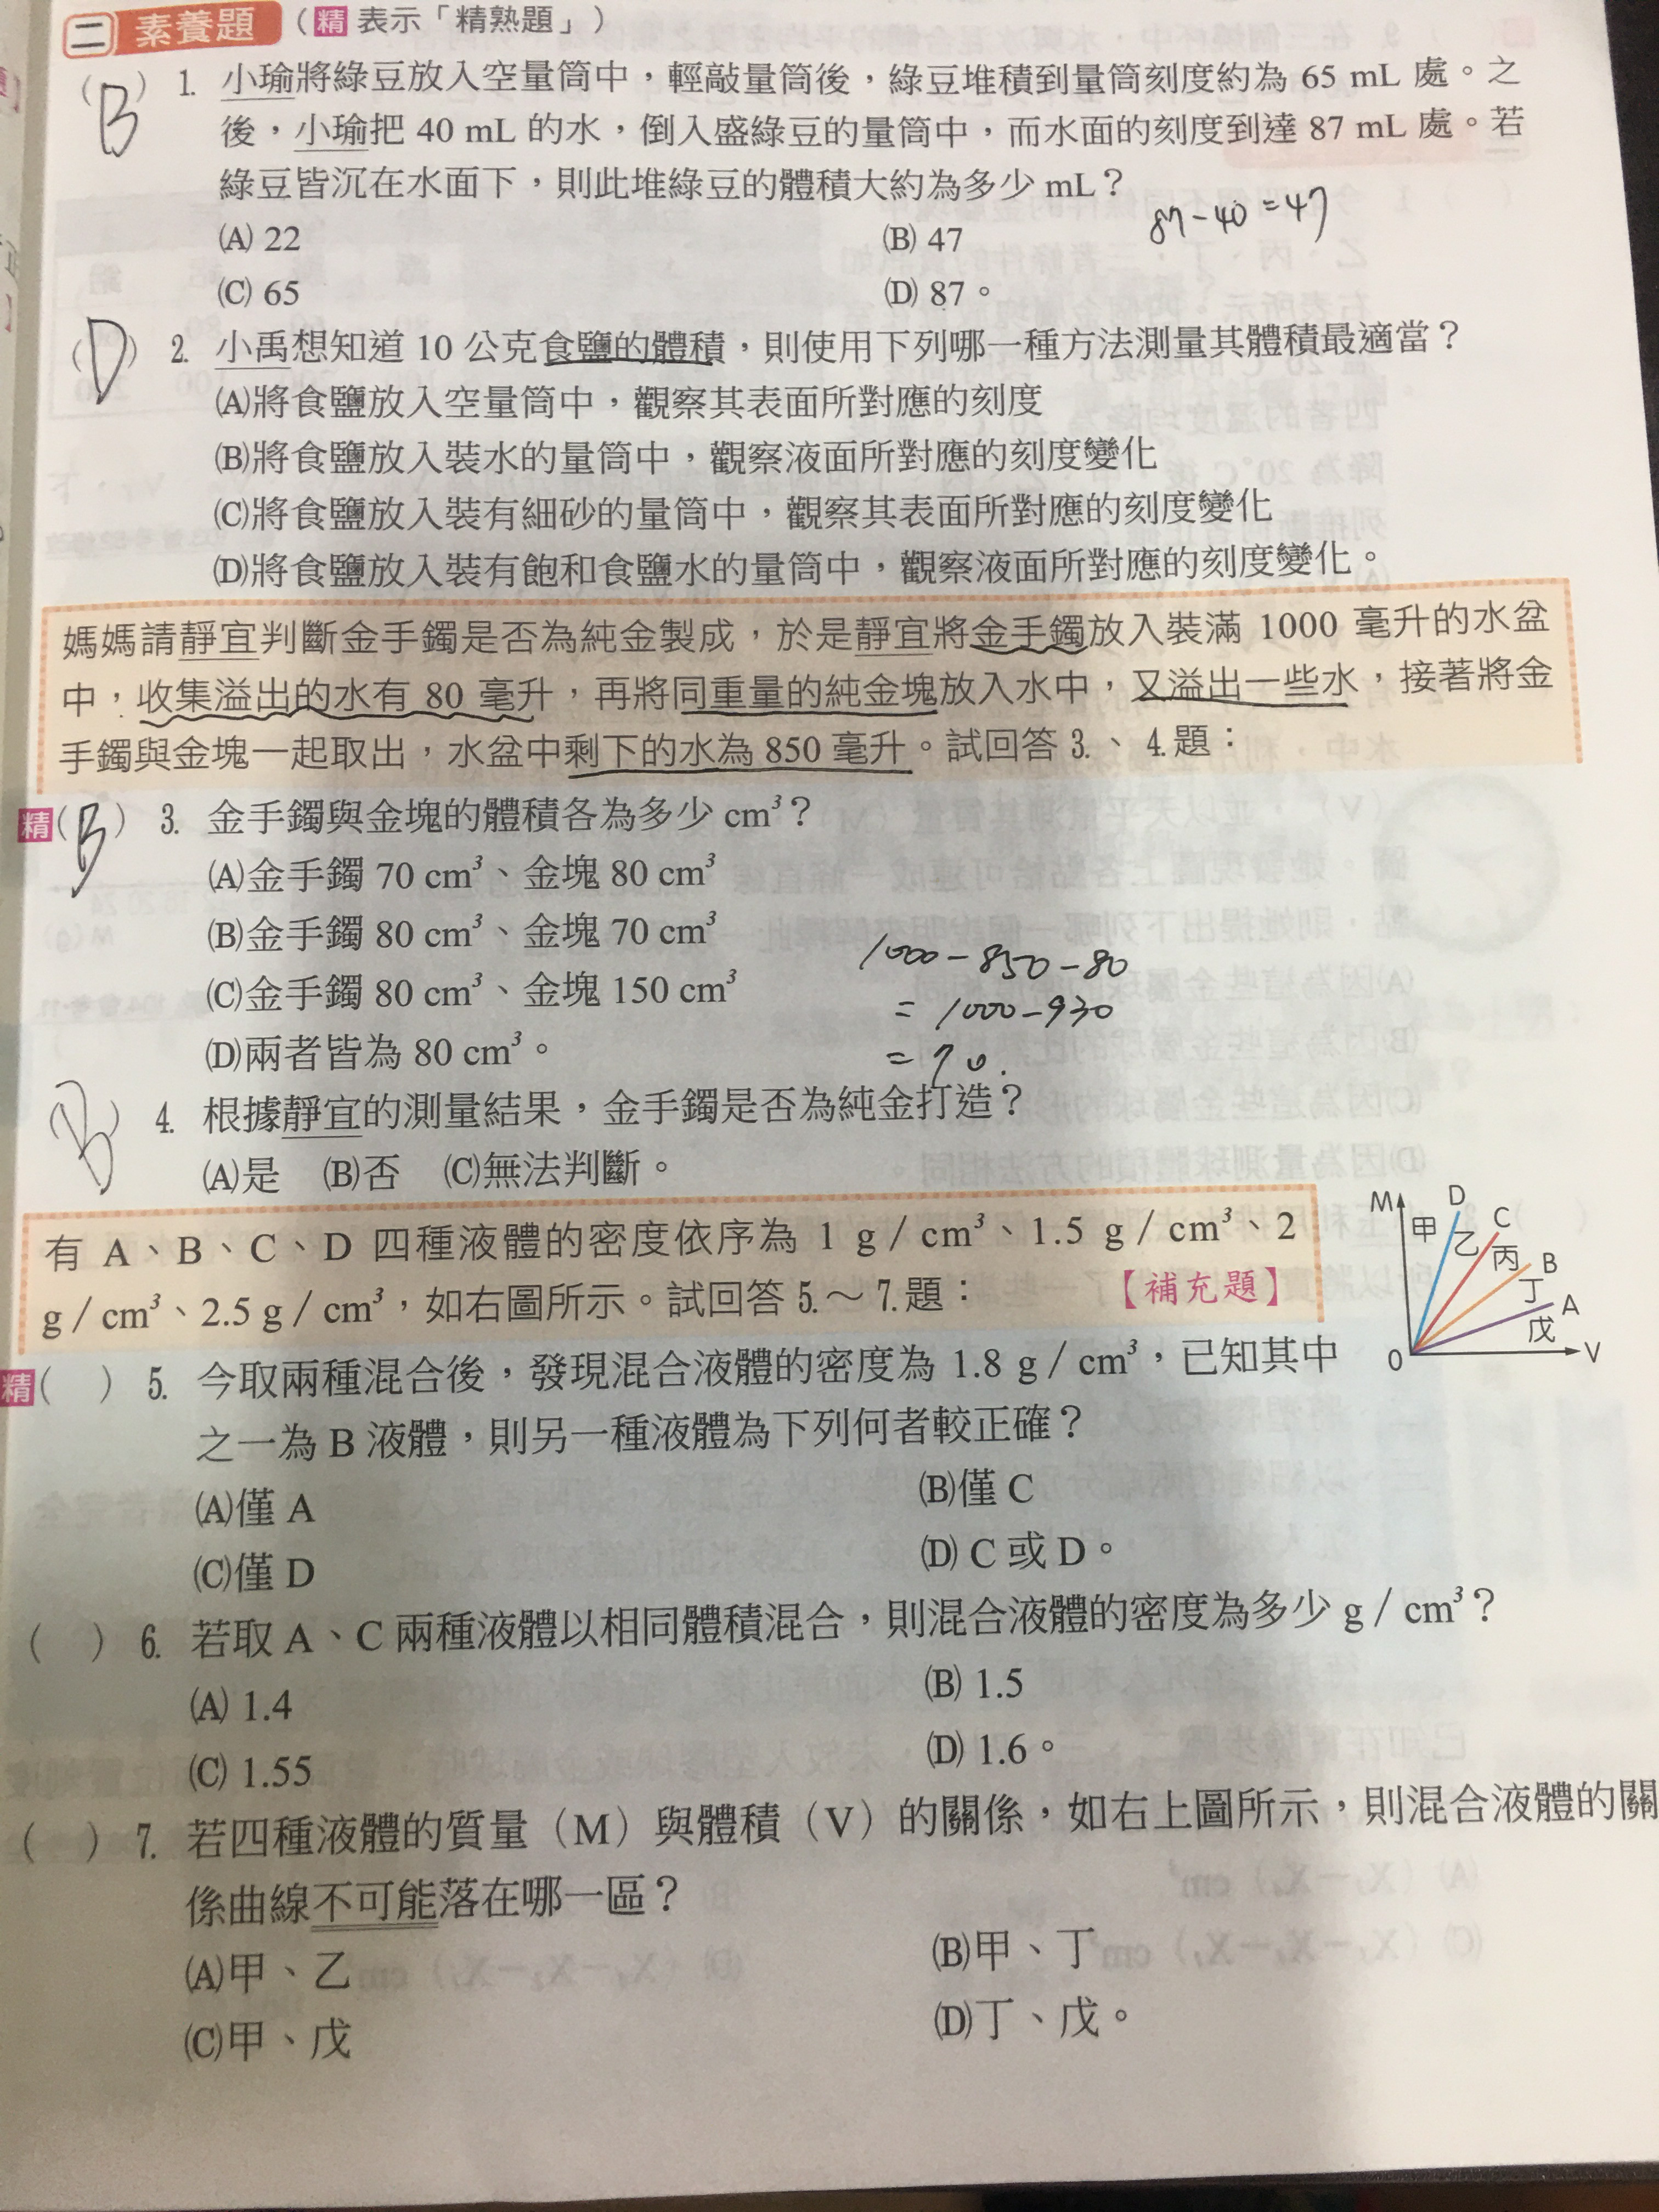 二 素養題 （精 表示「精熟題」）
（B）1. 小瑜將綠豆放入空量筒中，輕敲量筒後，綠豆堆積到量筒刻度約為 65 mL 處。之
後，小瑜把 40 mL 的水，倒入盛綠豆的量筒中，而水面的刻度到達 87 mL 處。若
綠豆皆沉在水面下，則此堆綠豆的體積大約為多少 mL？
87-40=47
(A) 22 (B) 47
(C) 65 (D) 87。
（D）2. 小禹想知道 10 公克食鹽的體積，則使用下列哪一種方法測量其體積最適當？
(A)將食鹽放入空量筒中，觀察其表面所對應的刻度
(B)將食鹽放入裝水的量筒中，觀察液面所對應的刻度變化
(C)將食鹽放入裝有細砂的量筒中，觀察其表面所對應的刻度變化
(D)將食鹽放入裝有飽和食鹽水的量筒中，觀察液面所對應的刻度變化。
媽媽請靜宜判斷金手鐲是否為純金製成，於是靜宜將金手鐲放入裝滿 1000 毫升的水盆
中，收集溢出的水有 80 毫升，再將同重量的純金塊放入水中，又溢出一些水，接著將金
手鐲與金塊一起取出，水盆中剩下的水為 850 毫升。試回答 3.、4.題：
精（B）3. 金手鐲與金塊的體積各為多少 cm³？
(A)金手鐲 70 cm³、金塊 80 cm³
(B)金手鐲 80 cm³、金塊 70 cm³
(C)金手鐲 80 cm³、金塊 150 cm³
(D)兩者皆為 80 cm³。
1000-850-80
=1000-930
=70.
（B）4. 根據靜宜的測量結果，金手鐲是否為純金打造？
(A)是 (B)否 (C)無法判斷。
有 A、B、C、D 四種液體的密度依序為 1 g / cm³、1.5 g / cm³、2
g / cm³、2.5 g / cm³，如右圖所示。試回答 5.～7.題： 【補充題】
M D C B A
甲 乙 丙 丁 戊
0 V
精（ ）5. 今取兩種混合後，發現混合液體的密度為 1.8 g / cm³，已知其中
之一為 B 液體，則另一種液體為下列何者較正確？
(A)僅 A (B)僅 C
(C)僅 D (D) C 或 D。
（ ）6. 若取 A、C 兩種液體以相同體積混合，則混合液體的密度為多少 g / cm³？
(A) 1.4 (B) 1.5
(C) 1.55 (D) 1.6。
（ ）7. 若四種液體的質量（M）與體積（V）的關係，如右上圖所示，則混合液體的關
係曲線不可能落在哪一區？
(A)甲、乙 (B)甲、丁
(C)甲、戊 (D)丁、戊。